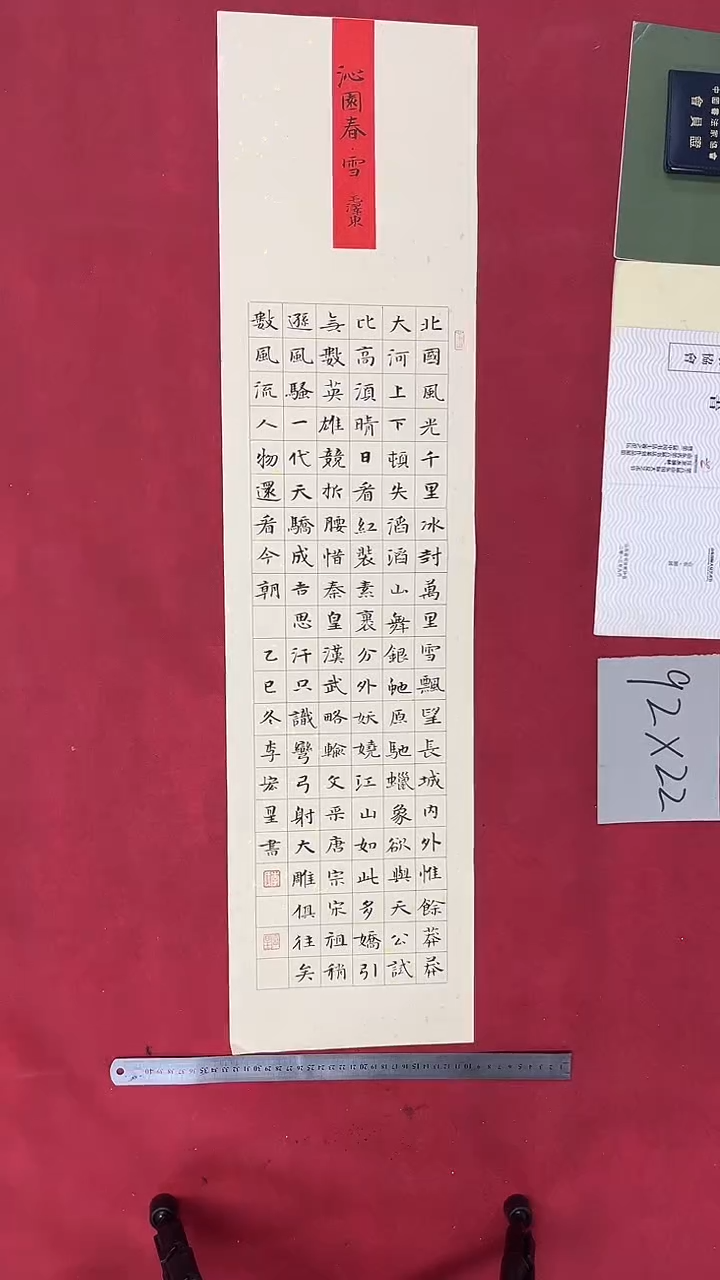 沁園春·雪 毛澤東
北國風光千里冰封萬里雪飄望長城内外惟餘莽莽
大河上下頓失滔滔山舞銀虵原馳蠟象欲與天公試
比高湏晴日看紅裝素裹分外妖嬈江山如此多嬌引
無數英雄競折腰惜秦皇漢武略輸文采唐宗宋祖稍
遜風騷一代天驕成吉思汗只識彎弓射大雕俱往矣
數風流人物還看今朝 乙巳冬李宏星書
中國書法家協會
會員證
協會
92X22